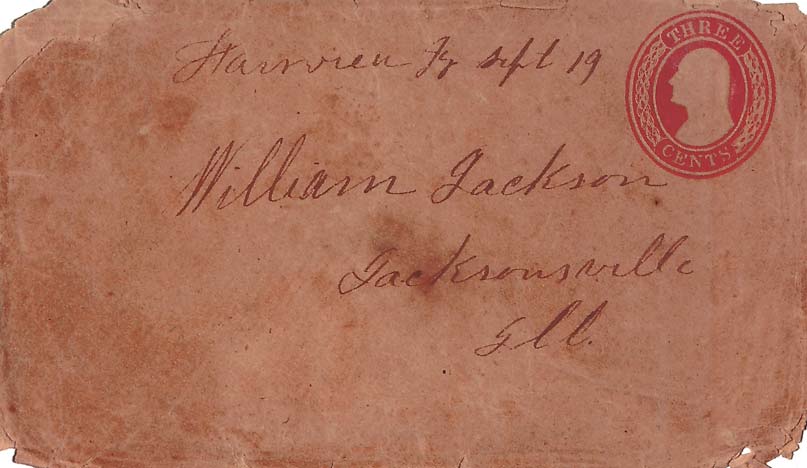 Fairview Ky sept 19
THREE
CENTS
William Jackson
Jacksonsville
Ill.